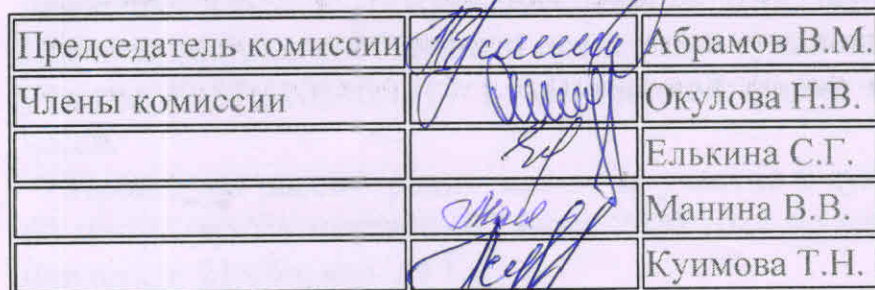 Председатель комиссии Абрамов В.М.
Члены комиссии Окулова Н.В.
Елькина С.Г.
Манина В.В.
Куимова Т.Н.